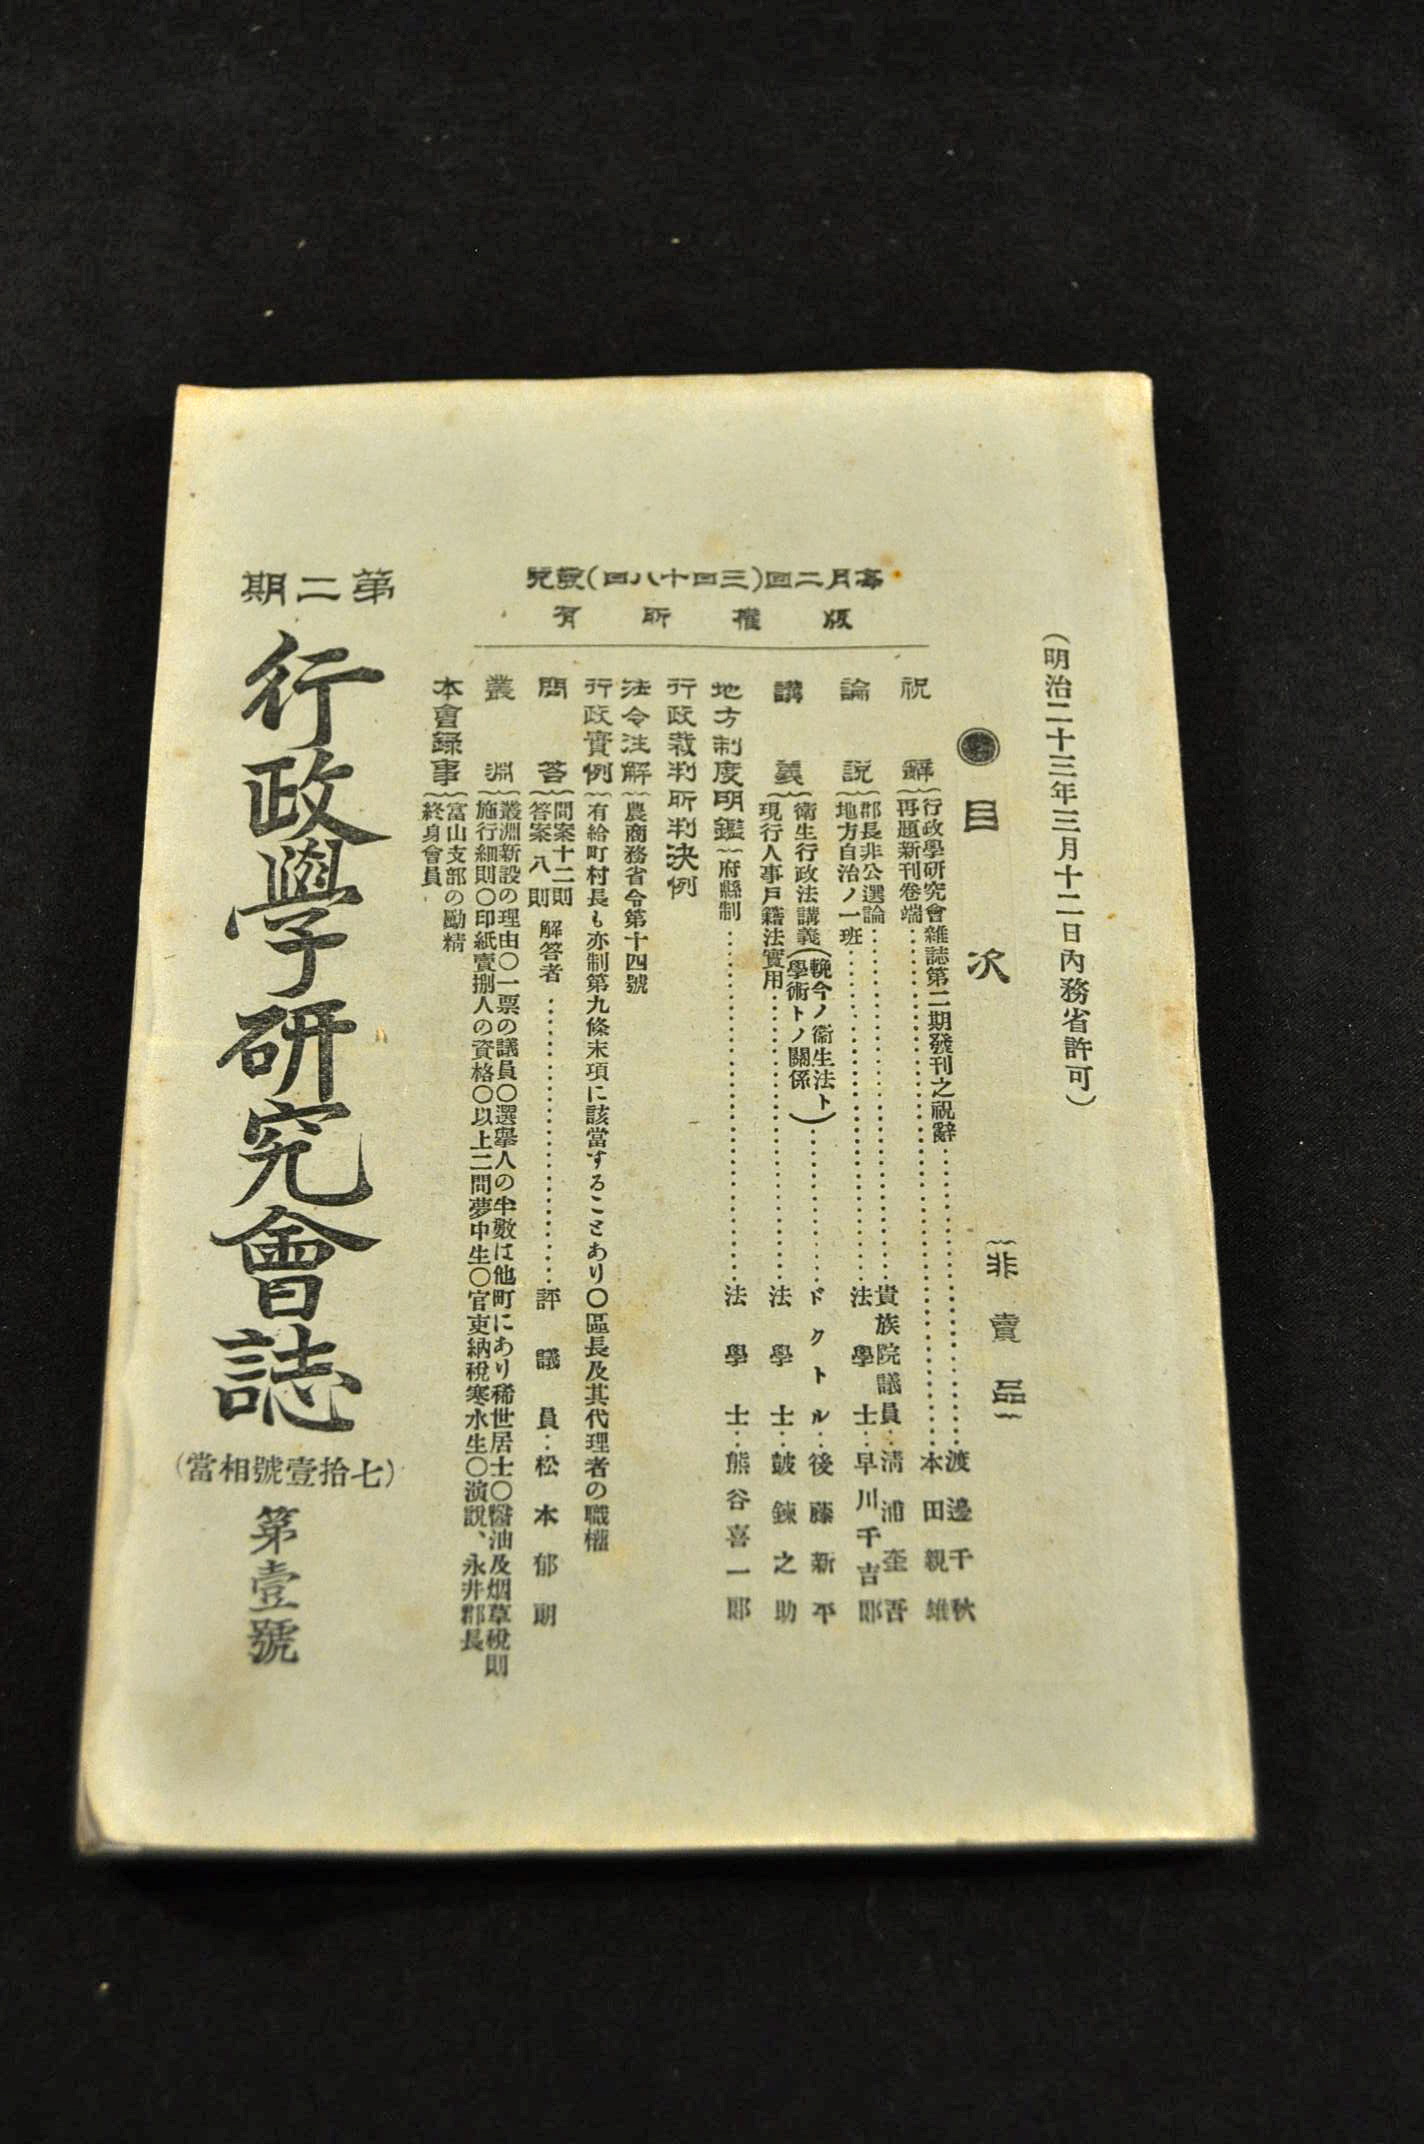 (明治二十三年三月十二日內務省許可)
非賣品
目次
每月二回(三日十八日)發兌
版權所有
祝辭
行政學硏究會雜誌第二期發刊之祝辭 渡邊千秋
再題新刊卷端 本田親雄
論說
郡長非公選論 貴族院議員 淸浦奎吾
地方自治ノ一班 法學士 早川千吉郎
講義
衞生行政法講義(輓今ノ衞生法ト學術トノ關係) ドクトル 後藤新平
現行人事戶籍法實用 法學士 皷鍊之助
地方制度明鑑
府縣制 法學士 熊谷喜一郎
行政裁判所判決例
法令注解
農商務省令第十四號
行政實例
有給町村長も亦制第九條末項に該當することあり〇區長及其代理者の職權
問答
問案十二則
答案八則
解答者 評議員 松本郁朗
叢淵
叢淵新設の理由〇一票の議員〇選擧人の半數は他町にあり稀世居士〇醬油及烟草稅則
施行細則〇印紙賣捌人の資格〇以上二問夢中生〇官吏納稅寒水生〇演說、永井郡長
本會錄事
富山支部の勵精
終身會員
第二期
行政學硏究會誌
(七拾壹號相當)
第壹號